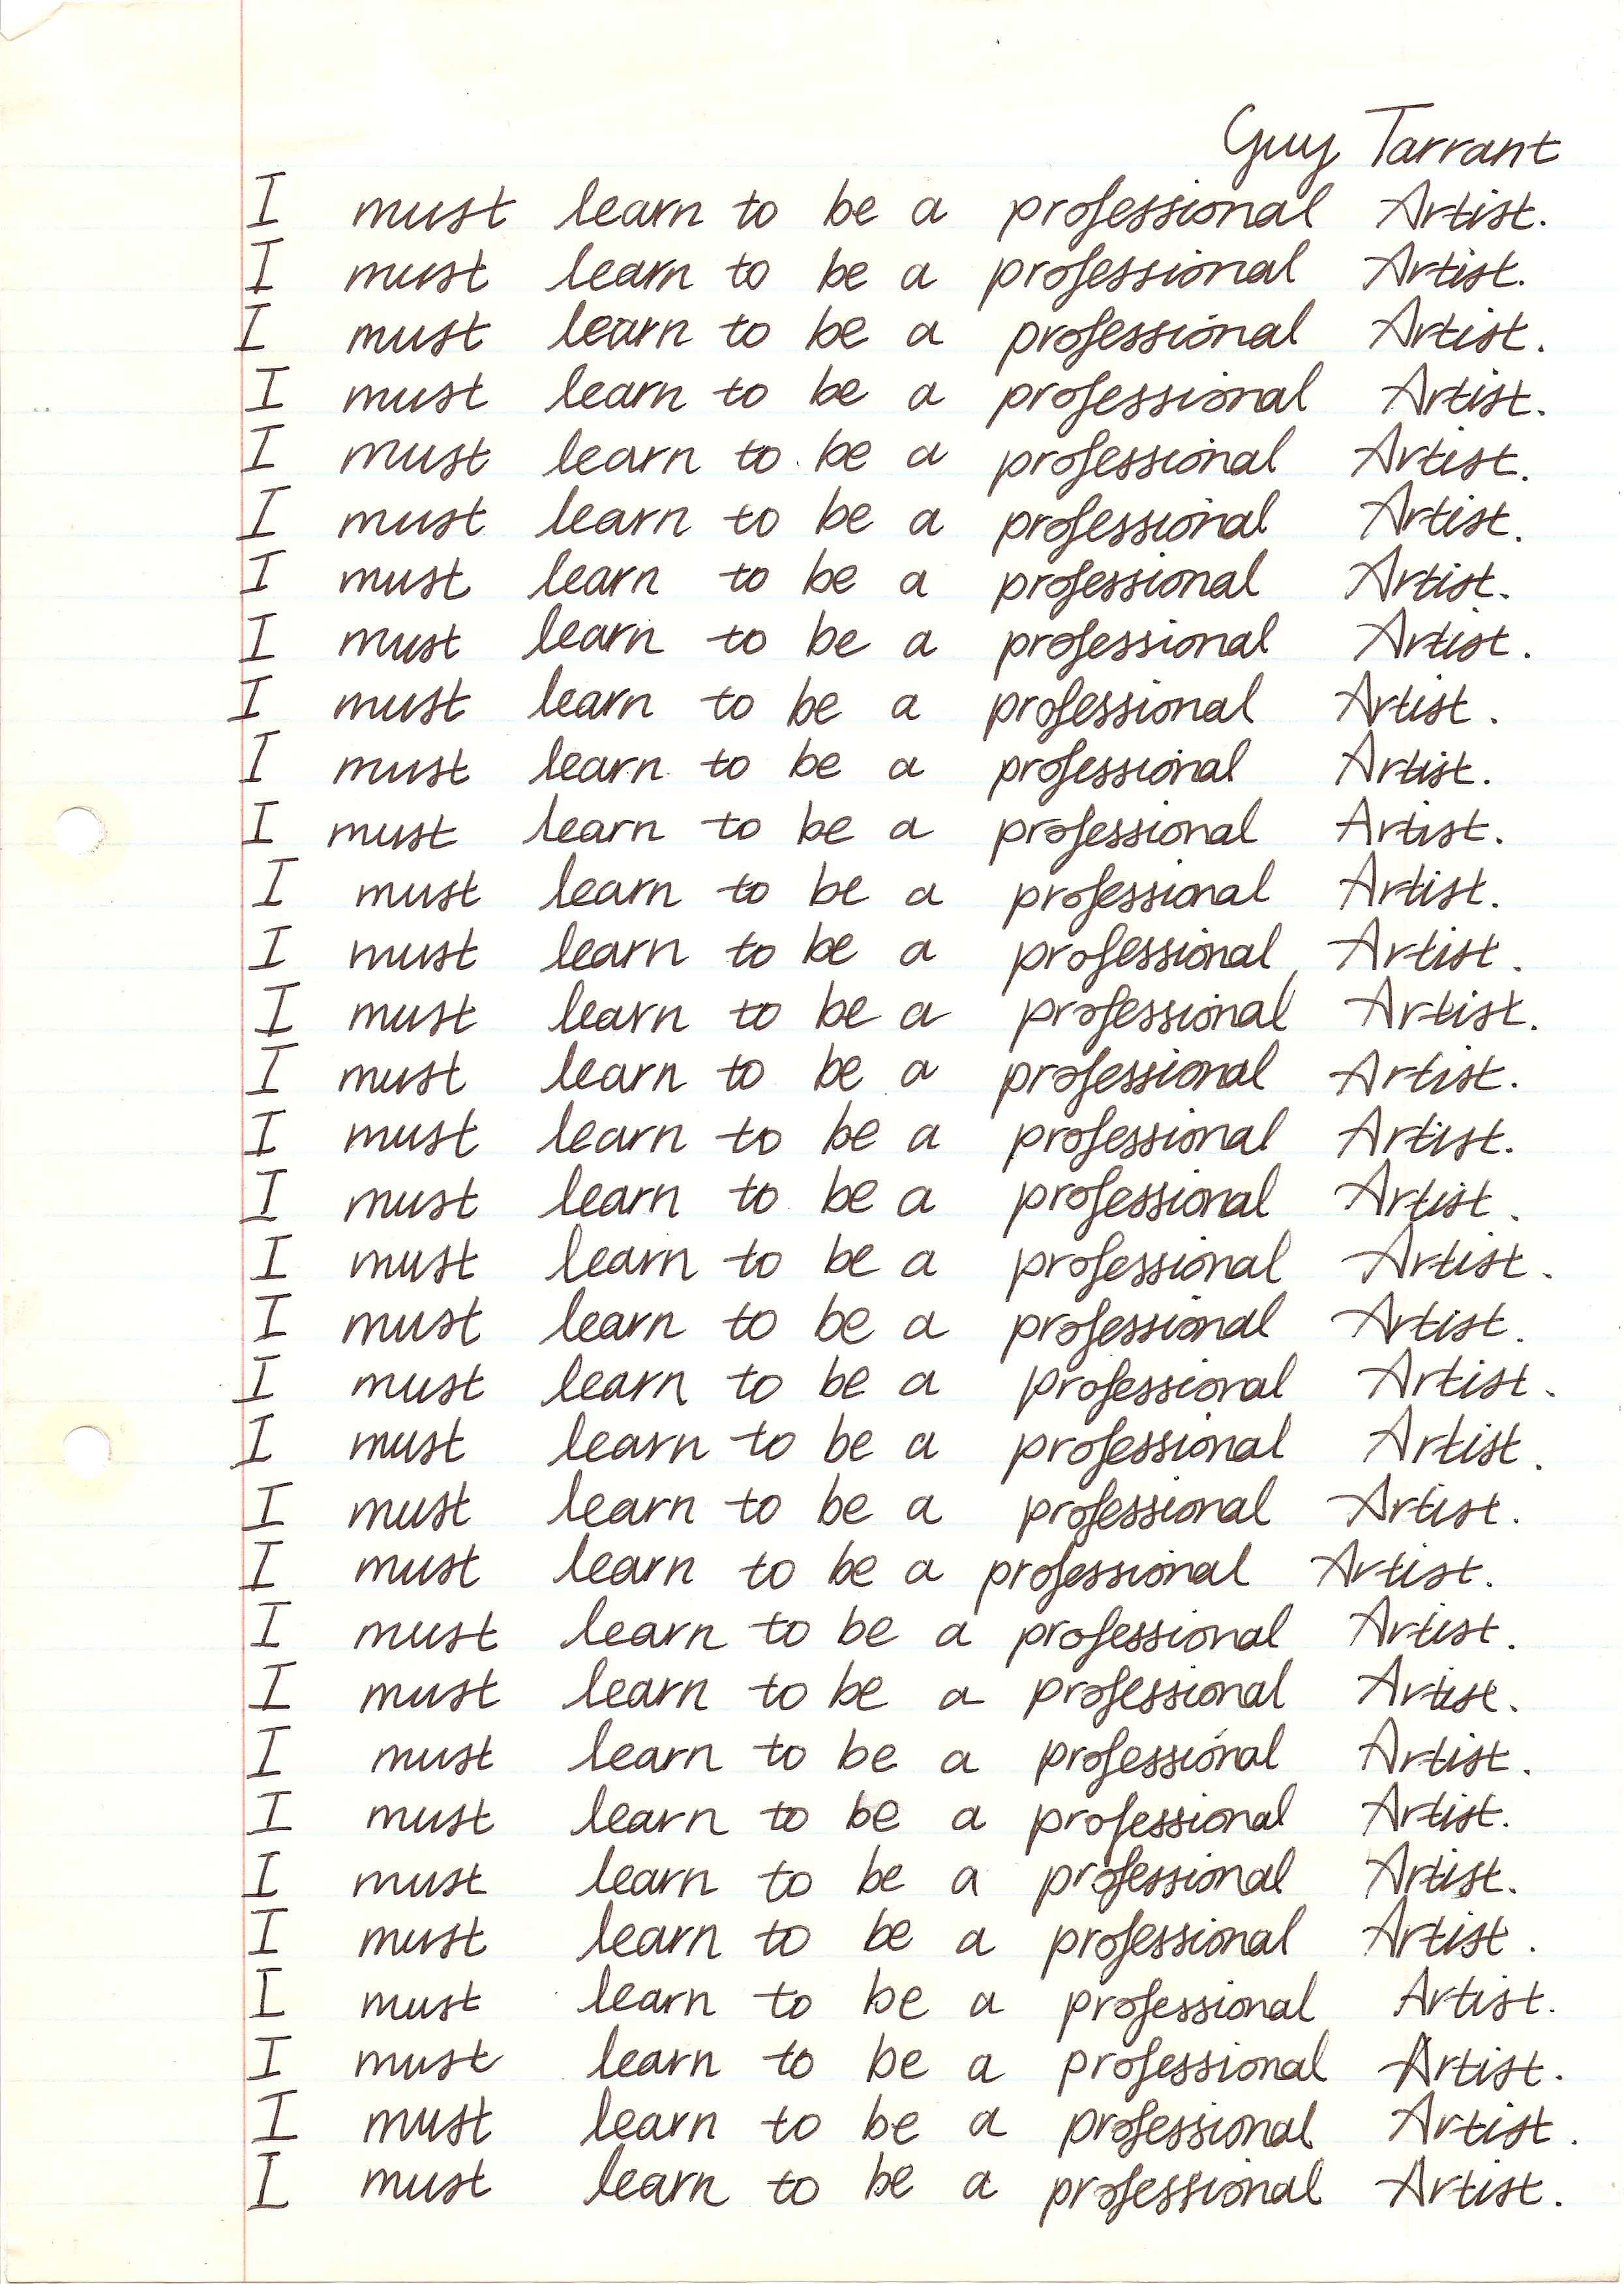 Guy Tarrant
I must learn to be a professional Artist.
I must learn to be a professional Artist.
I must learn to be a professional Artist.
I must learn to be a professional Artist.
I must learn to be a professional Artist.
I must learn to be a professional Artist.
I must learn to be a professional Artist.
I must learn to be a professional Artist.
I must learn to be a professional Artist.
I must learn to be a professional Artist.
I must learn to be a professional Artist.
I must learn to be a professional Artist.
I must learn to be a professional Artist.
I must learn to be a professional Artist.
I must learn to be a professional Artist.
I must learn to be a professional Artist.
I must learn to be a professional Artist.
I must learn to be a professional Artist.
I must learn to be a professional Artist.
I must learn to be a professional Artist.
I must learn to be a professional Artist.
I must learn to be a professional Artist.
I must learn to be a professional Artist.
I must learn to be a professional Artist.
I must learn to be a professional Artist.
I must learn to be a professional Artist.
I must learn to be a professional Artist.
I must learn to be a professional Artist.
I must learn to be a professional Artist.
I must learn to be a professional Artist.
I must learn to be a professional Artist.
I must learn to be a professional Artist.
I must learn to be a professional Artist.